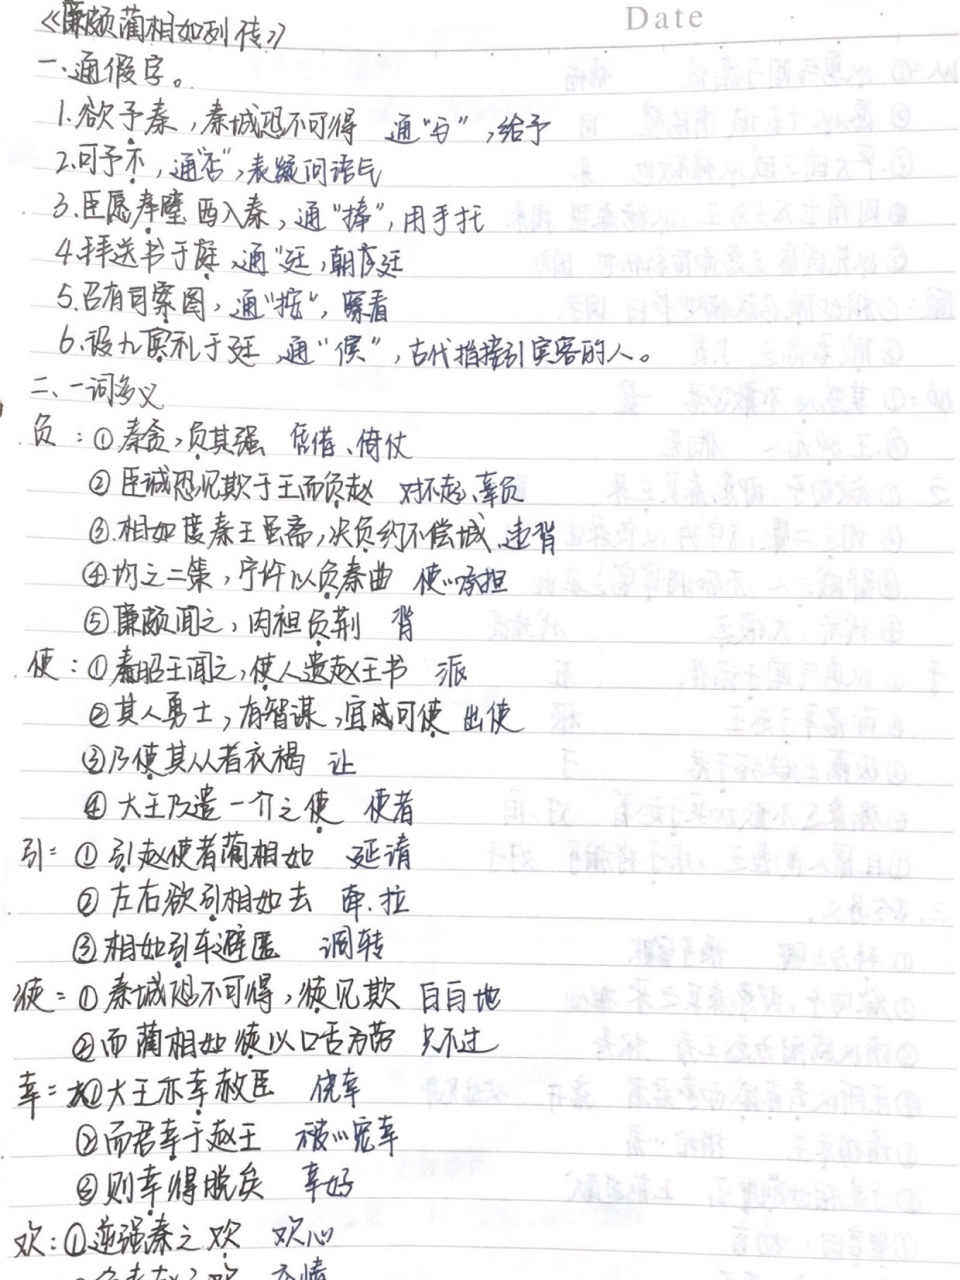 Date
《廉颇蔺相如列传》
一.通假字。
1.欲予秦,秦城恐不可得 通"与",给予
2.可予不,通"否",表疑问语气
3.臣愿奉璧西入秦,通"捧",用手托
4.拜送书于庭,通"廷,朝廷
5.召有司案图,通"按",察看
6.设九宾礼于廷,通"傧",古代指接引宾客的人。
二、一词多义
负:①秦贪,负其强 凭借、倚仗
②臣诚恐见欺于王而负赵 对不起、辜负
③相如度秦王虽斋,决负约不偿城、违背
④均之二策,宁许以负秦曲 使…承担
⑤廉颇闻之,肉袒负荆 背
使:①秦昭王闻之,使人遗赵王书 派
②其人勇士,有智谋,宜成可使 出使
③乃使其从者衣褐 让
④大王乃遣一介之使 使者
引:①引赵使者蔺相如 延请
②左右欲引相如去 牵.拉
③相如引车避匿 调转
徒:①秦城恐不可得,徒见欺 白白地
②而蔺相如徒以口舌为劳 只不过
幸:①大王亦幸赦臣 侥幸
②而君幸于赵王 被…宠幸
③则幸得脱矣 幸好
欢:①逆强秦之欢 欢心